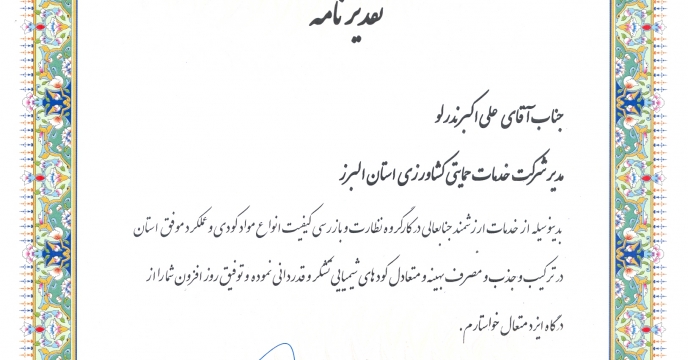 تقدیر نامه
جناب آقای علی اکبر ندرلو
مدیر شرکت خدمات حمایتی کشاورزی استان البرز
بدینوسیله از خدمات ارزشمند جنابعالی در کارگروه نظارت و بازرسی کیفیت انواع مواد کودی و عملکرد موفق استان
در ترکیب و جذب و مصرف بهینه و متعادل کودهای شیمیایی تشکر و قدردانی نموده و توفیق روز افزون شما را از
درگاه ایزد متعال خواستارم.